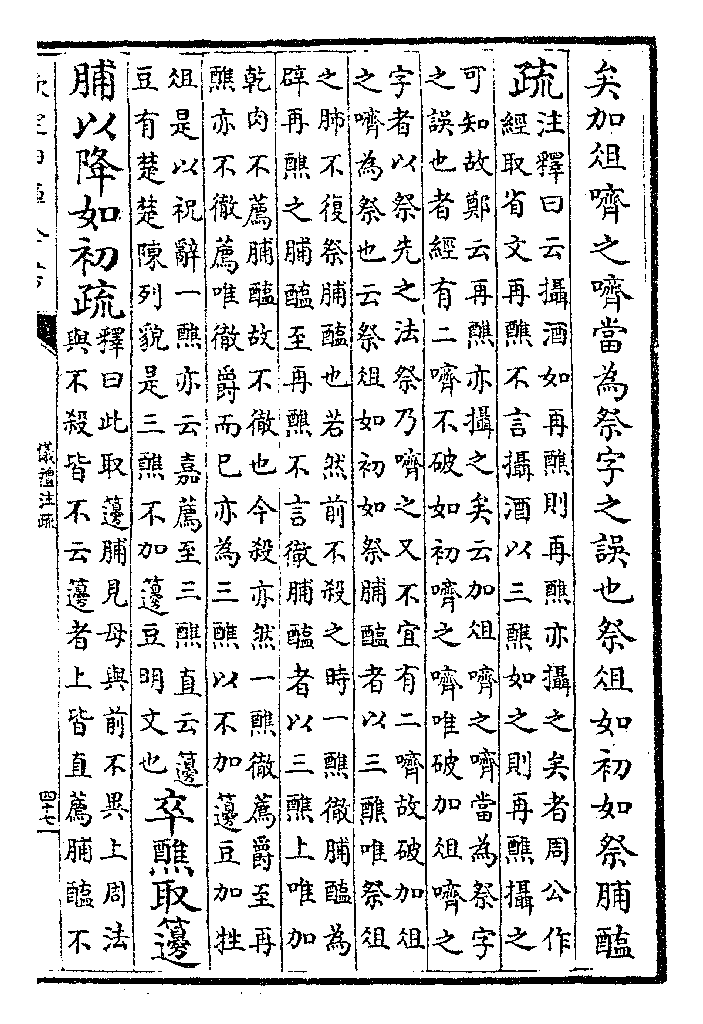 矣加俎嚌之嚌當為祭字之誤也祭俎如初如祭脯醢
疏注釋曰云攝酒如再醮則再醮亦攝之矣者周公作
經取省文再醮不言攝酒以三醮如之則再醮攝之
可知故鄭云再醮亦攝之矣云加俎嚌之嚌當為祭字
之誤也者經有二嚌不破如初嚌之嚌唯破加俎嚌之
字者以祭先之法祭乃嚌之又不宜有二嚌故破加俎
之嚌為祭也云祭俎如初如祭脯醢者以三醮唯祭俎
之肺不復祭脯醢也若然前不殺之時一醮徹脯醢為
辟再醮之脯醢至再醮不言徹脯醢者以三醮上唯加
乾肉不薦脯醢故不徹也今殺亦然一醮徹薦爵至再
醮亦不徹薦唯徹爵而已亦為三醮以不加籩豆加牲
俎是以祝辭一醮亦云嘉薦至三醮直云籩
豆有楚楚陳列貌是三醮不加籩豆明文也
卒醮取籩
脯以降如初疏
釋曰此取籩脯見母與前不異上周法
與不殺皆不云籩者上皆直薦脯醢不
儀禮注疏
四十七